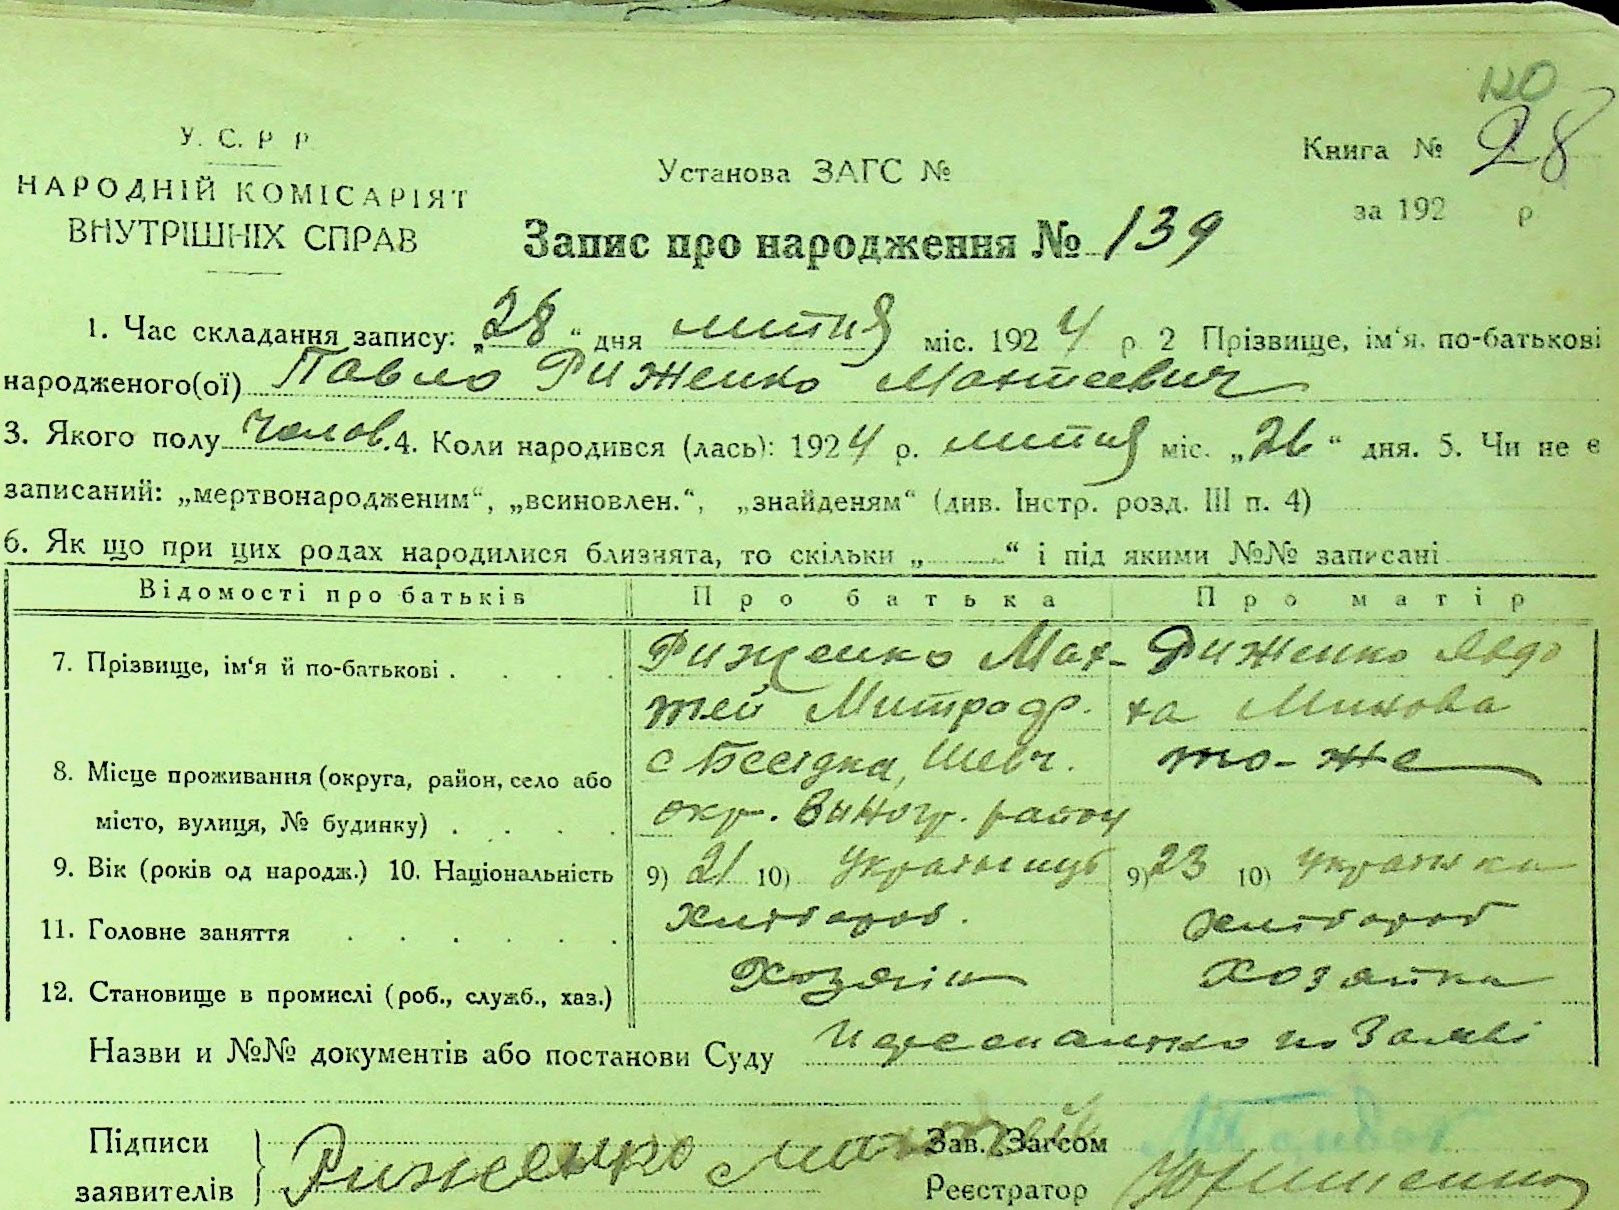 120
У. С. Р. Р.
Книга № 28
НАРОДНІЙ КОМІСАРІЯТ
Установа ЗАГС №
за 192 р
ВНУТРІШНІХ СПРАВ
Запис про народження № 139
1. Час складання запису: „28“ дня липня міс. 1924 р 2 Прізвище, ім‘я, по-батькові
народженого(ої) Павло Риженко Матвеевич
3. Якого полу Челов. 4. Коли народився (лась): 1924 р. липня міс. „26“ дня. 5. Чи не є
записаний: „мертвонародженим“, „всиновлен.“, „знайденям“ (див. Інстр. розд. III п. 4)
6. Як що при цих родах народилися близнята, то скільки „ “ і під якими №№ записані
Відомості про батьків Про батька Про матір
7. Прізвище, ім‘я й по-батькові . . . . Риженко Мат- Риженко Явдо
вей Митроф. ха
8. Місце проживання (округа, район, село або с Шевч. то-же
місто, вулиця, № будинку) . . . . окр. Виногр. район
9. Вік (років од народж.) 10. Національність 9) 21 10) Українець 9) 23 10) Українка
11. Головне заняття . . . . . . Хлібороб. Хлібороб
12. Становище в промислі (роб., служб., хаз.) Хозяїн Хозяйка
Назви и №№ документів або постанови Суду
Підписи
заявителів
Риженко Матвей
Зав. Загсом
Реєстратор